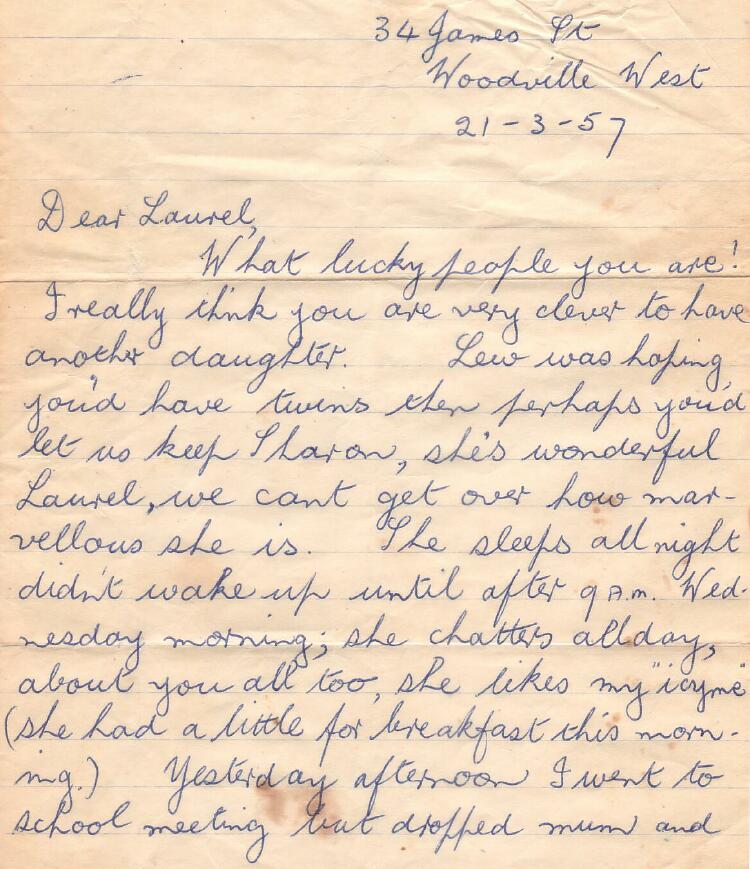 34 James St
Woodville West
21-3-57
Dear Laurel,
What lucky people you are!
I really think you are very clever to have
another daughter. Lew was hoping
you'd have twins then perhaps you'd
let us keep Sharon, she's wonderful
Laurel, we cant get over how mar-
vellous she is. She sleeps all night
didn't wake up until after 9 A.m. Wed-
nesday morning; she chatters all day,
about you all too, she likes my "icyme"
(she had a little for breakfast this morn-
ing.) Yesterday afternoon I went to
school meeting but dropped mum and